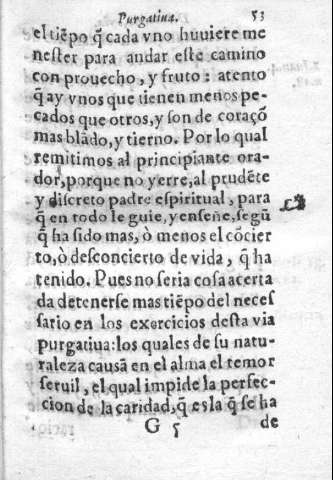 Purgatiua. 53
el tiẽpo q̃ cada vno huuiere me
nester para andar este camino
con prouecho, y fruto: atento
q̃ ay vnos que tienen menos pe-
cados que otros, y son de coraçõ
mas blãdo, y tierno. Por lo qual
remitimos al principiante ora-
dor, porque no yerre, al prudẽte
y discreto padre espiritual, para
q̃ en todo le guie, y enseñe, segũ
q̃ ha sido mas, ò menos el cõcier
to, ò desconcierto de vida, q̃ ha
tenido. Pues no seria cosa acerta
da detenerse mas tiẽpo del neces
sario en los exercicios desta via
purgatiua: los quales de su natu-
raleza causã en el alma el temor
seruil, el qual impide la perfec-
cion de la caridad, q̃ es la q̃ se ha
G 5 de